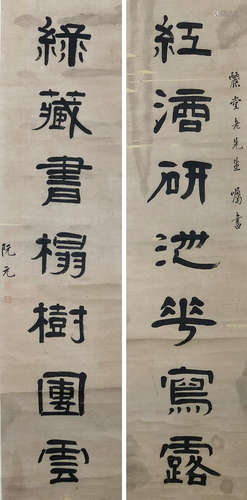 堂老先生囑書
紅酒研池華寫露
綠藏書榻樹團雲
阮元